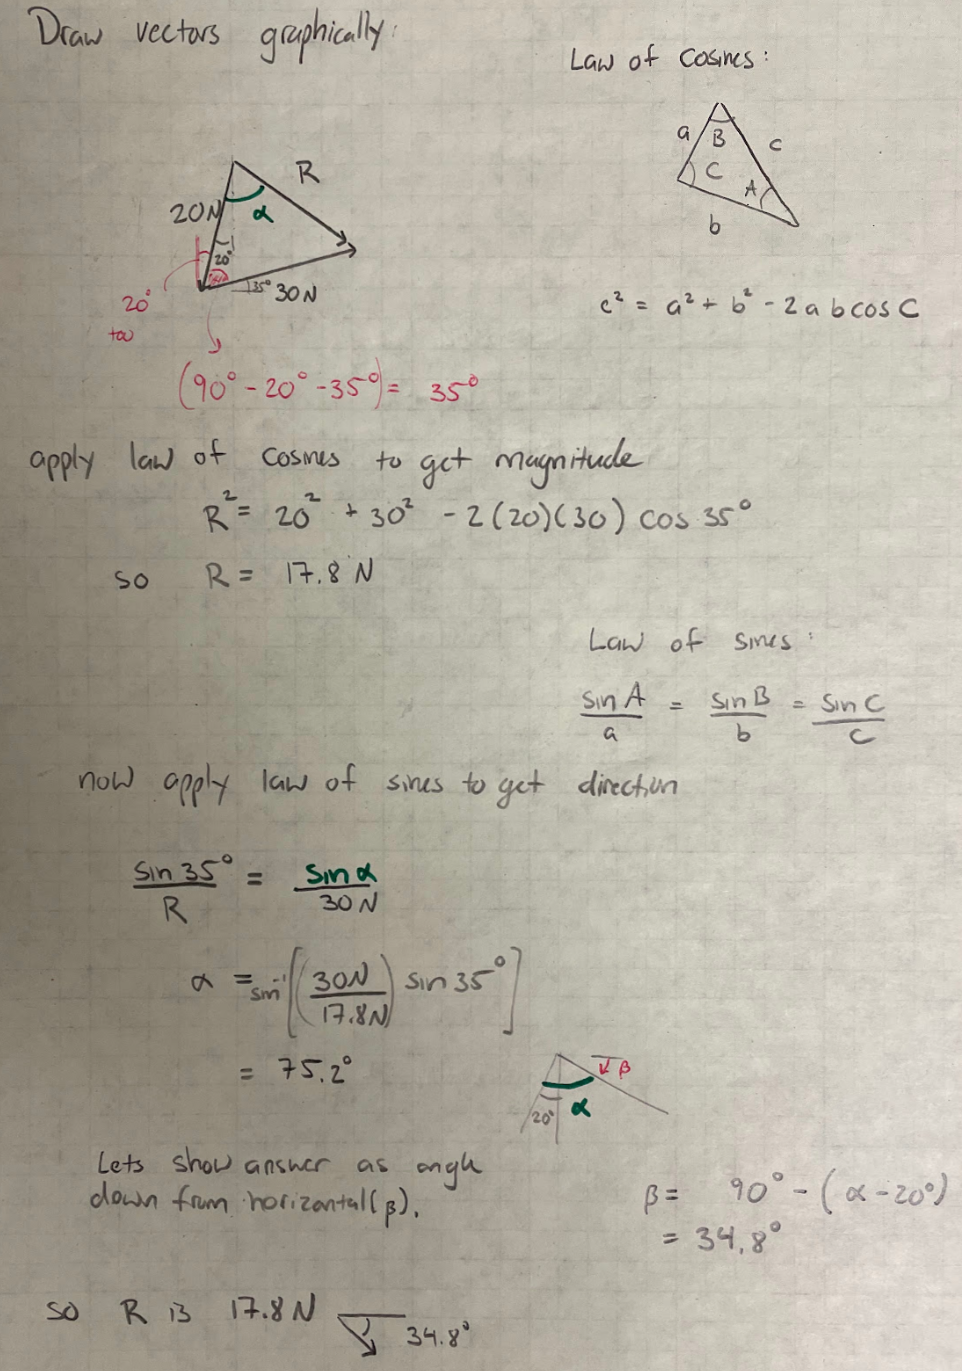 Draw vectors graphically:
Law of cosines:
a
B
c
C
A
b
R
20N
α
20°
35° 30N
20°
too
c² = a² + b² - 2abcosC
(90° - 20° - 35°) = 35°
apply law of cosines to get magnitude
R² = 20² + 30² - 2(20)(30) cos 35°
so R = 17.8 N
Law of sines:
sinA/a = sinB/b = sinC/c
now apply law of sines to get direction
sin 35°/R = sin α/30N
α = sin⁻¹[(30N/17.8N) sin 35°]
= 75.2°
β
20° α
Lets show answer as angle
down from horizontal (β).
β = 90° - (α - 20°)
= 34.8°
so R is 17.8N 34.8°